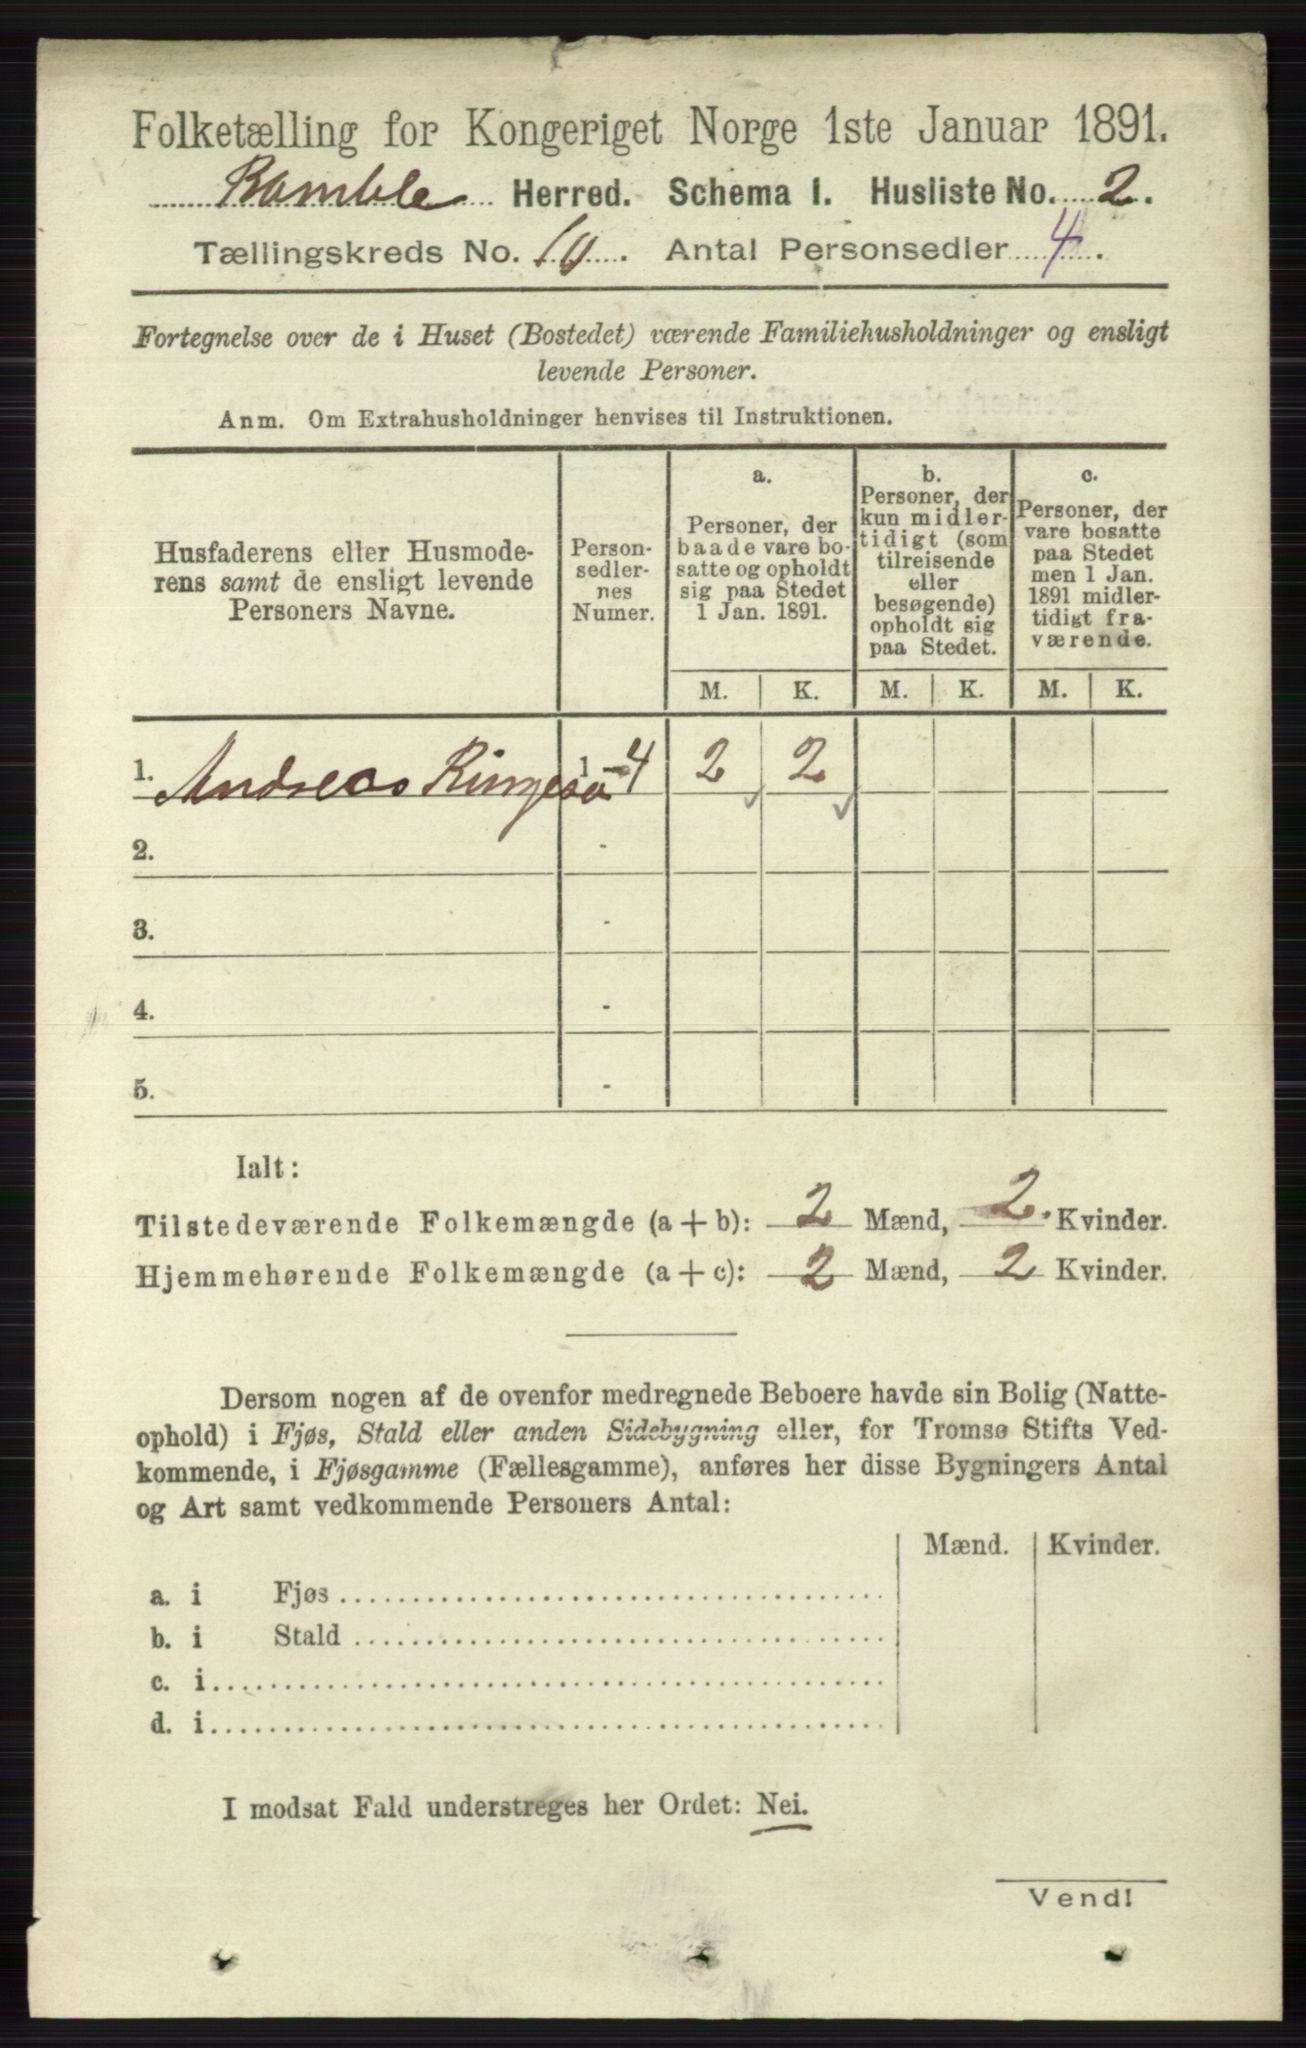 Folketælling for Kongeriget Norge 1ste Januar 1891.
Bamble Herred. Schema I. Husliste No. 2.
Tællingskreds No. 10. Antal Personsedler 4.
Fortegnelse over de i Huset (Bostedet) værende Familiehusholdninger og ensligt
levende Personer.
Anm. Om Extrahusholdninger henvises til Instruktionen.
Husfaderens eller Husmode-
rens samt de ensligt levende
Personers Navne.
Person-
sedler-
nes
Numer.
a.
Personer, der
baade vare bo-
satte og opholdt
sig paa Stedet
1 Jan. 1891.
b.
Personer, der
kun midler-
tidigt (som
tilreisende
eller
besøgende)
opholdt sig
paa Stedet.
c.
Personer, der
vare bosatte
paa Stedet
men 1 Jan.
1891 midler-
tidigt fra-
værende.
M. K. M. K. M. K.
1. Andreas 1-4 2 2
2. -
3. -
4. -
5. -
Ialt:
Tilstedeværende Folkemængde (a + b): 2 Mænd, 2. Kvinder.
Hjemmehørende Folkemængde (a + c): 2 Mænd, 2 Kvinder.
Dersom nogen af de ovenfor medregnede Beboere havde sin Bolig (Natte-
ophold) i Fjøs, Stald eller anden Sidebygning eller, for Tromsø Stifts Ved-
kommende, i Fjøsgamme (Fællesgamme), anføres her disse Bygningers Antal
og Art samt vedkommende Personers Antal:
Mænd. Kvinder.
a. i Fjøs
b. i Stald
c. i
d. i
I modsat Fald understreges her Ordet: Nei.
Vend!